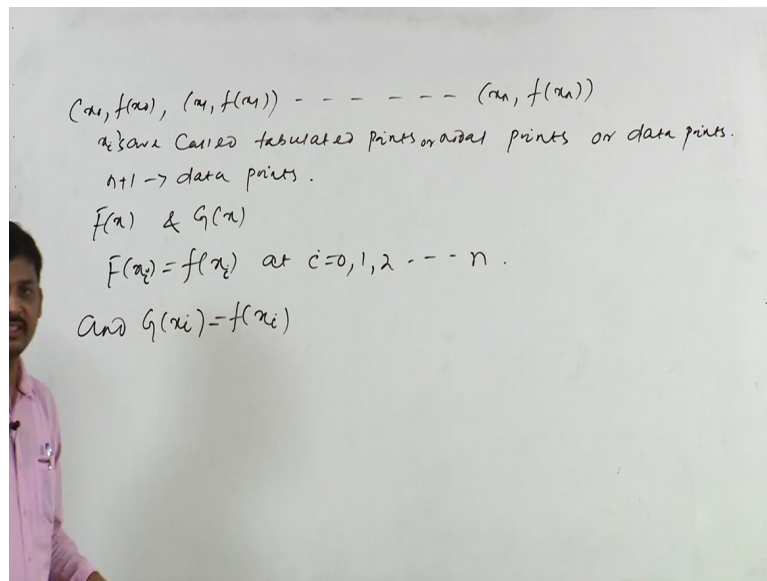 (x₀, f(x₀)), (x₁, f(x₁)) - - - - - - - (xₙ, f(xₙ))
xᵢ's are called tabulated points or nodal points or data points.
n+1 → data points.
F(x) & G(x)
F(xᵢ) = f(xᵢ) at i=0,1,2 - - - n.
and G(xᵢ) = f(xᵢ)